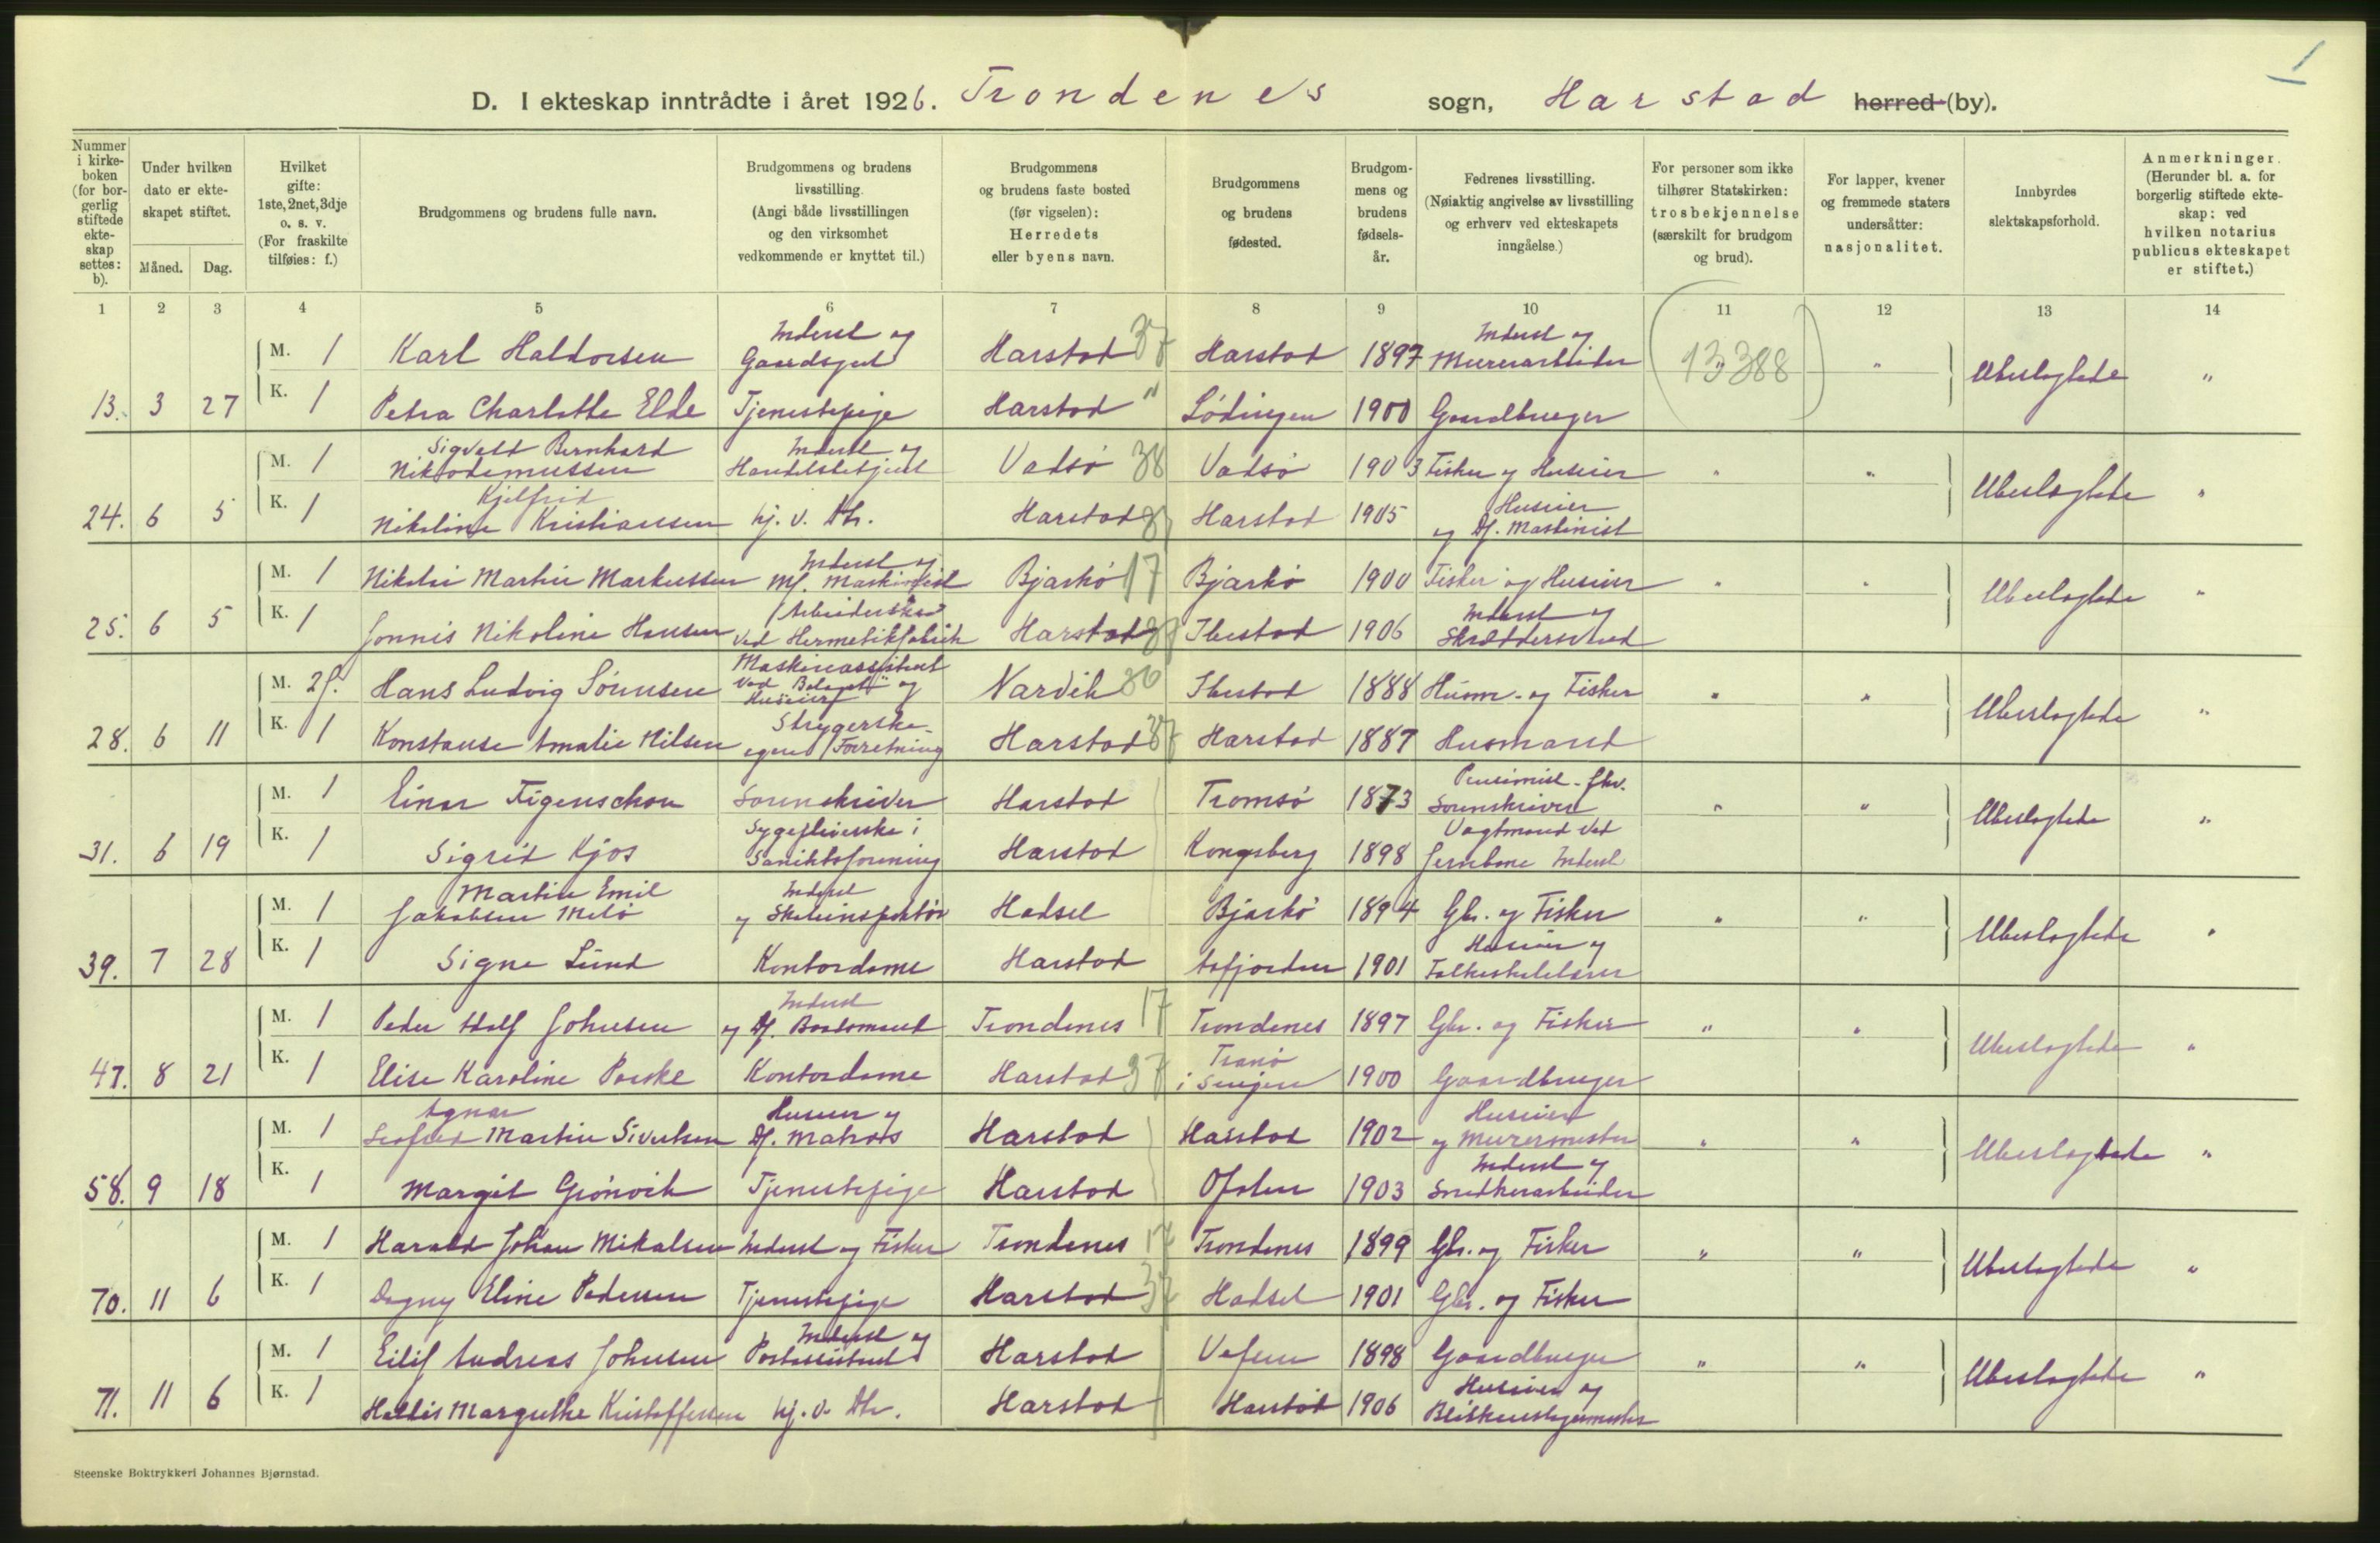 D. I ekteskap inntrådte i året 1926. Trondenes sogn, Harstad herred (by).
1
Nummer i kirke-boken (for bor-gerlig stiftede ekte-skap settes: b).
Under hvilken dato er ekte-skapet stiftet.
Måned. Dag.
Hvilket gifte: 1ste, 2net, 3dje o. s. v. (For fraskilte tilføies: f.)
Brudgommens og brudens fulle navn.
Brudgommens og brudens livsstilling. (Angi både livsstillingen og den virksomhet vedkommende er knyttet til.)
Brudgommens og brudens faste bosted (før vigselen): Herredets eller byens navn.
Brudgommens og brudens fødested.
Brudgom-mens og brudens fødsels-år.
Fedrenes livsstilling. (Nøiaktig angivelse av livsstilling og erhverv ved ekteskapets inngåelse.)
For personer som ikke tilhører Statskirken: trosbekjennelse (særskilt for brudgom og brud).
For lapper, kvener og fremmede staters undersåtter: nasjonalitet.
Innbyrdes slektskapsforhold.
Anmerkninger. (Herunder bl. a. for borgerlig stiftede ekte-skap: ved hvilken notarius publicus ekteskapet er stiftet.)
1 2 3 4 5 6 7 8 9 10 11 12 13 14
M. 1 Karl Haldorsen Inderst og Gaardsgut Harstad 37 Harstad 1897 Inderst og Murerarbeider 13388 " Ubeslægtede "
13. 3 27 K. 1 Petra Charlotte Elde Tjenestepige Harstad " Lødingen 1900 Gaardbruger
M. 1 Sigvald Bernhard Nikodemussen Inderst og Handelsbetjent Vadsø 38 Vadsø 1903 Fisker og Huseier " " Ubeslægtede "
24. 6 5 K. 1 Kjelfrid Nikoline Kristiansen hj. v. Dtr. Harstad 37 Harstad 1905 Huseier og Df. Maskinist
M. 1 Nikolai Martin Markussen Inderst og Mf. Maskinist Bjarkö 17 Bjarkö 1900 Fisker og Huseier " " Ubeslægtede "
25. 6 5 K. 1 Jonnis Nikoline Hansen Arbeiderske ved Hermetikfabrik Harstad 37 Ibestad 1906 Inderst og Skræddersvend
M. 2f. Hans Ludvig Sörensen Maskinassistent ved og Huseier Narvik 36 Ibestad 1888 Husm. og Fisker " " Ubeslægtede "
28. 6 11 K. 1 Konstanse Amalie Nilsen Strygerske egen Forretning Harstad 37 Harstad 1887 Husmand
M. 1 Einar Figenschou Sorenskriver Harstad Tromsö 1873 Pensionist fhv. Sorenskriver " " Ubeslægtede "
31. 6 19 K. 1 Sigrid Kjos Sygepleierske i Sanitetsforening Harstad Kongsberg 1898 Vagtmand ved Jernbane Inderst
M. 1 Martin Emil Jakobsen Melö Inderst og Skoleinspektör Hadsel Bjarkö 1894 Gbr. og Fisker " " Ubeslægtede "
39. 7 28 K. 1 Signe Lund Kontordame Harstad Aafjorden 1901 Huseier og Folkeskolelærer
M. 1 Peder Adolf Johnsen Inderst og Df. Baatsmand Trondenes 17 Trondenes 1897 Gbr. og Fisker " " Ubeslægtede "
47. 8 21 K. 1 Elise Karoline Paaske Kontordame Harstad 37 Tranö i Senjen 1900 Gaardbruger
M. 1 Agnar Martin Sivertsen Huseier og Df. Matros Harstad Harstad 1902 Huseier og Murermester " " Ubeslægtede "
58. 9 18 K. 1 Margit Grönvik Tjenestepige Harstad Ofoten 1903 Inderst og Snedkerarbeider
M. 1 Harald Johan Mikalsen Inderst og Fisker Trondenes 17 Trondenes 1899 Gbr. og Fisker " " Ubeslægtede "
70. 11 6 K. 1 Dagny Eline Pedersen Tjenestepige Harstad 37 Hadsel 1901 Gbr. og Fisker
M. 1 Eilif Andreas Johnsen Inderst og Postassistent Harstad Vefsen 1898 Gaardbruger " " Ubeslægtede "
71. 11 6 K. 1 Hallis Margrethe Kristoffersen hj. v. Dtr. Harstad Harstad 1906 Huseier og Blikkenslagermester
Steenske Boktrykkeri Johannes Bjørnstad.